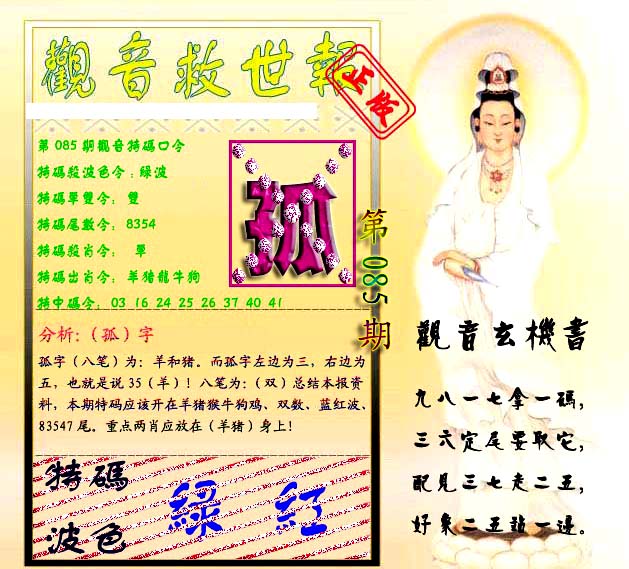 觀音救世報
正版
第 085 期觀音特碼口令
特碼殺波色令：綠波
特碼單雙令： 雙
特碼尾數令： 8354
特碼殺肖令： 單
特碼出肖令： 羊猪龍牛狗
特中碼令： 03 16 24 25 26 37 40 41
孤
第 085 期
分析：（孤）字
孤字（八笔）为：羊和猪。而孤字左边为三，右边为
五，也就是说 35（羊）！八笔为：（双）总结本报资
料，本期特码应该开在羊猪猴牛狗鸡、双数、蓝红波、
83547 尾。重点两肖应放在（羊猪）身上！
特碼
波色
綠 紅
觀音玄機書
九八一七拿一碼，
三六定尾要取它，
配見三七走二五，
好象二五站一邊。